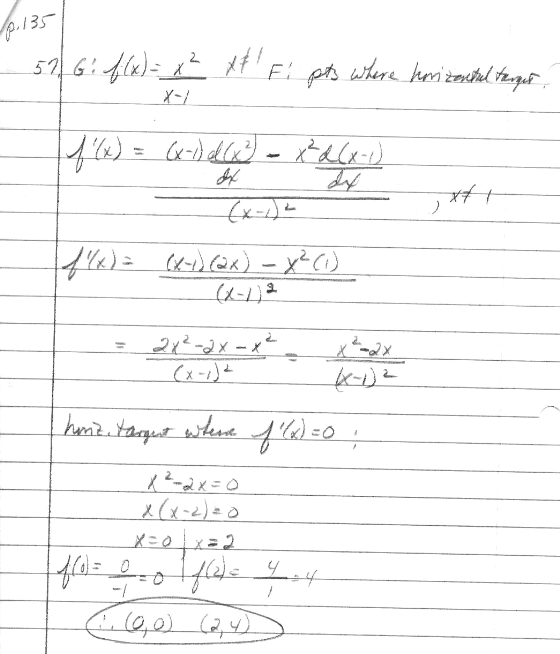 p.135
57. G: f(x) = x²/(x-1) x≠1 F: pts where horizontal tangent.
f'(x) = ((x-1) d(x²)/dx - x² d(x-1)/dx)/(x-1)², x≠1
f'(x) = ((x-1)(2x) - x²(1))/(x-1)²
= (2x²-2x-x²)/(x-1)² = (x²-2x)/(x-1)²
horiz. tangent where f'(x)=0 :
x²-2x=0
x(x-2)=0
x=0 | x=2
f(0)= 0/-1 = 0 | f(2)= 4/1 = 4
∴ (0,0) (2,4)